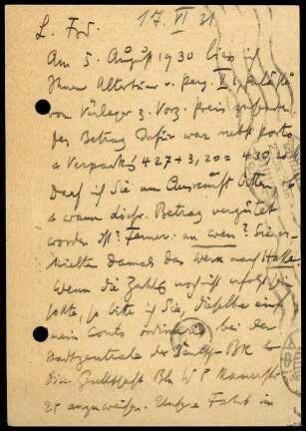 17. VI 31
L. Frd.
Am 5. August 1930 liess ich
Ihnen Altertüm. v. Perg. V 1, Paläste
vom Verleger z. Vorz. preis zusenden.
Der Betrag dafür war nebst Porto
u Verpackg 427 + 3,20 = 430,20
Darf ich Sie um Auskunft bitten, ob
u wann dieser Betrag vergütet
worden ist? Ferner: an wen? Sie er-
hielten damals das Werk nach Halle.
Wenn die Zahlg noch nicht erfolgt sein
sollte, so bitte ich Sie, dieselbe auf
mein Conto ordinario bei der
Stadtzentrale der Deutsch. Bk u
Disc. Gesellschaft Bln W 8 Mauerstr
25 anzuweisen. Unsere Fahrt in